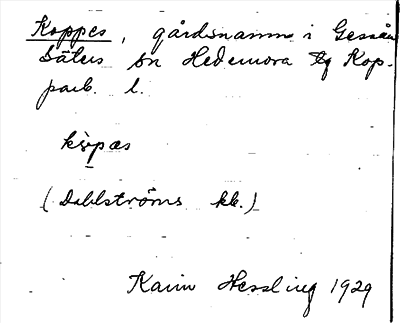 Koppes, gårdsnamn i Gessån
Säters sn Hedemora tg Kop-
parb. l.
kòpas
(Dahlströms kb.)
Karin Hessling 1929